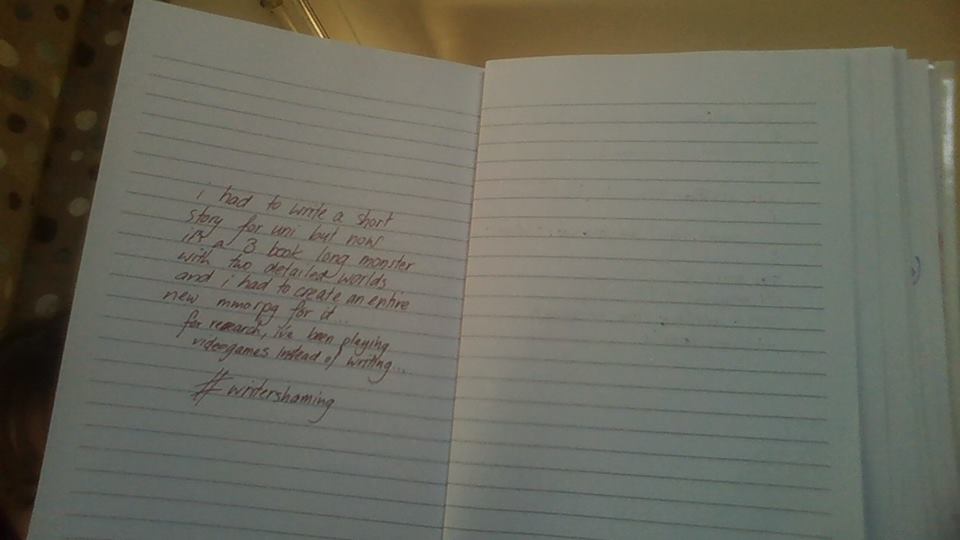 i had to write a short
story for uni but now
it's a 3 book long monster
with two detailed worlds
and i had to create an entire
new mmorpg for it...
for research, i've been playing
videogames instead of writing...
#writershaming